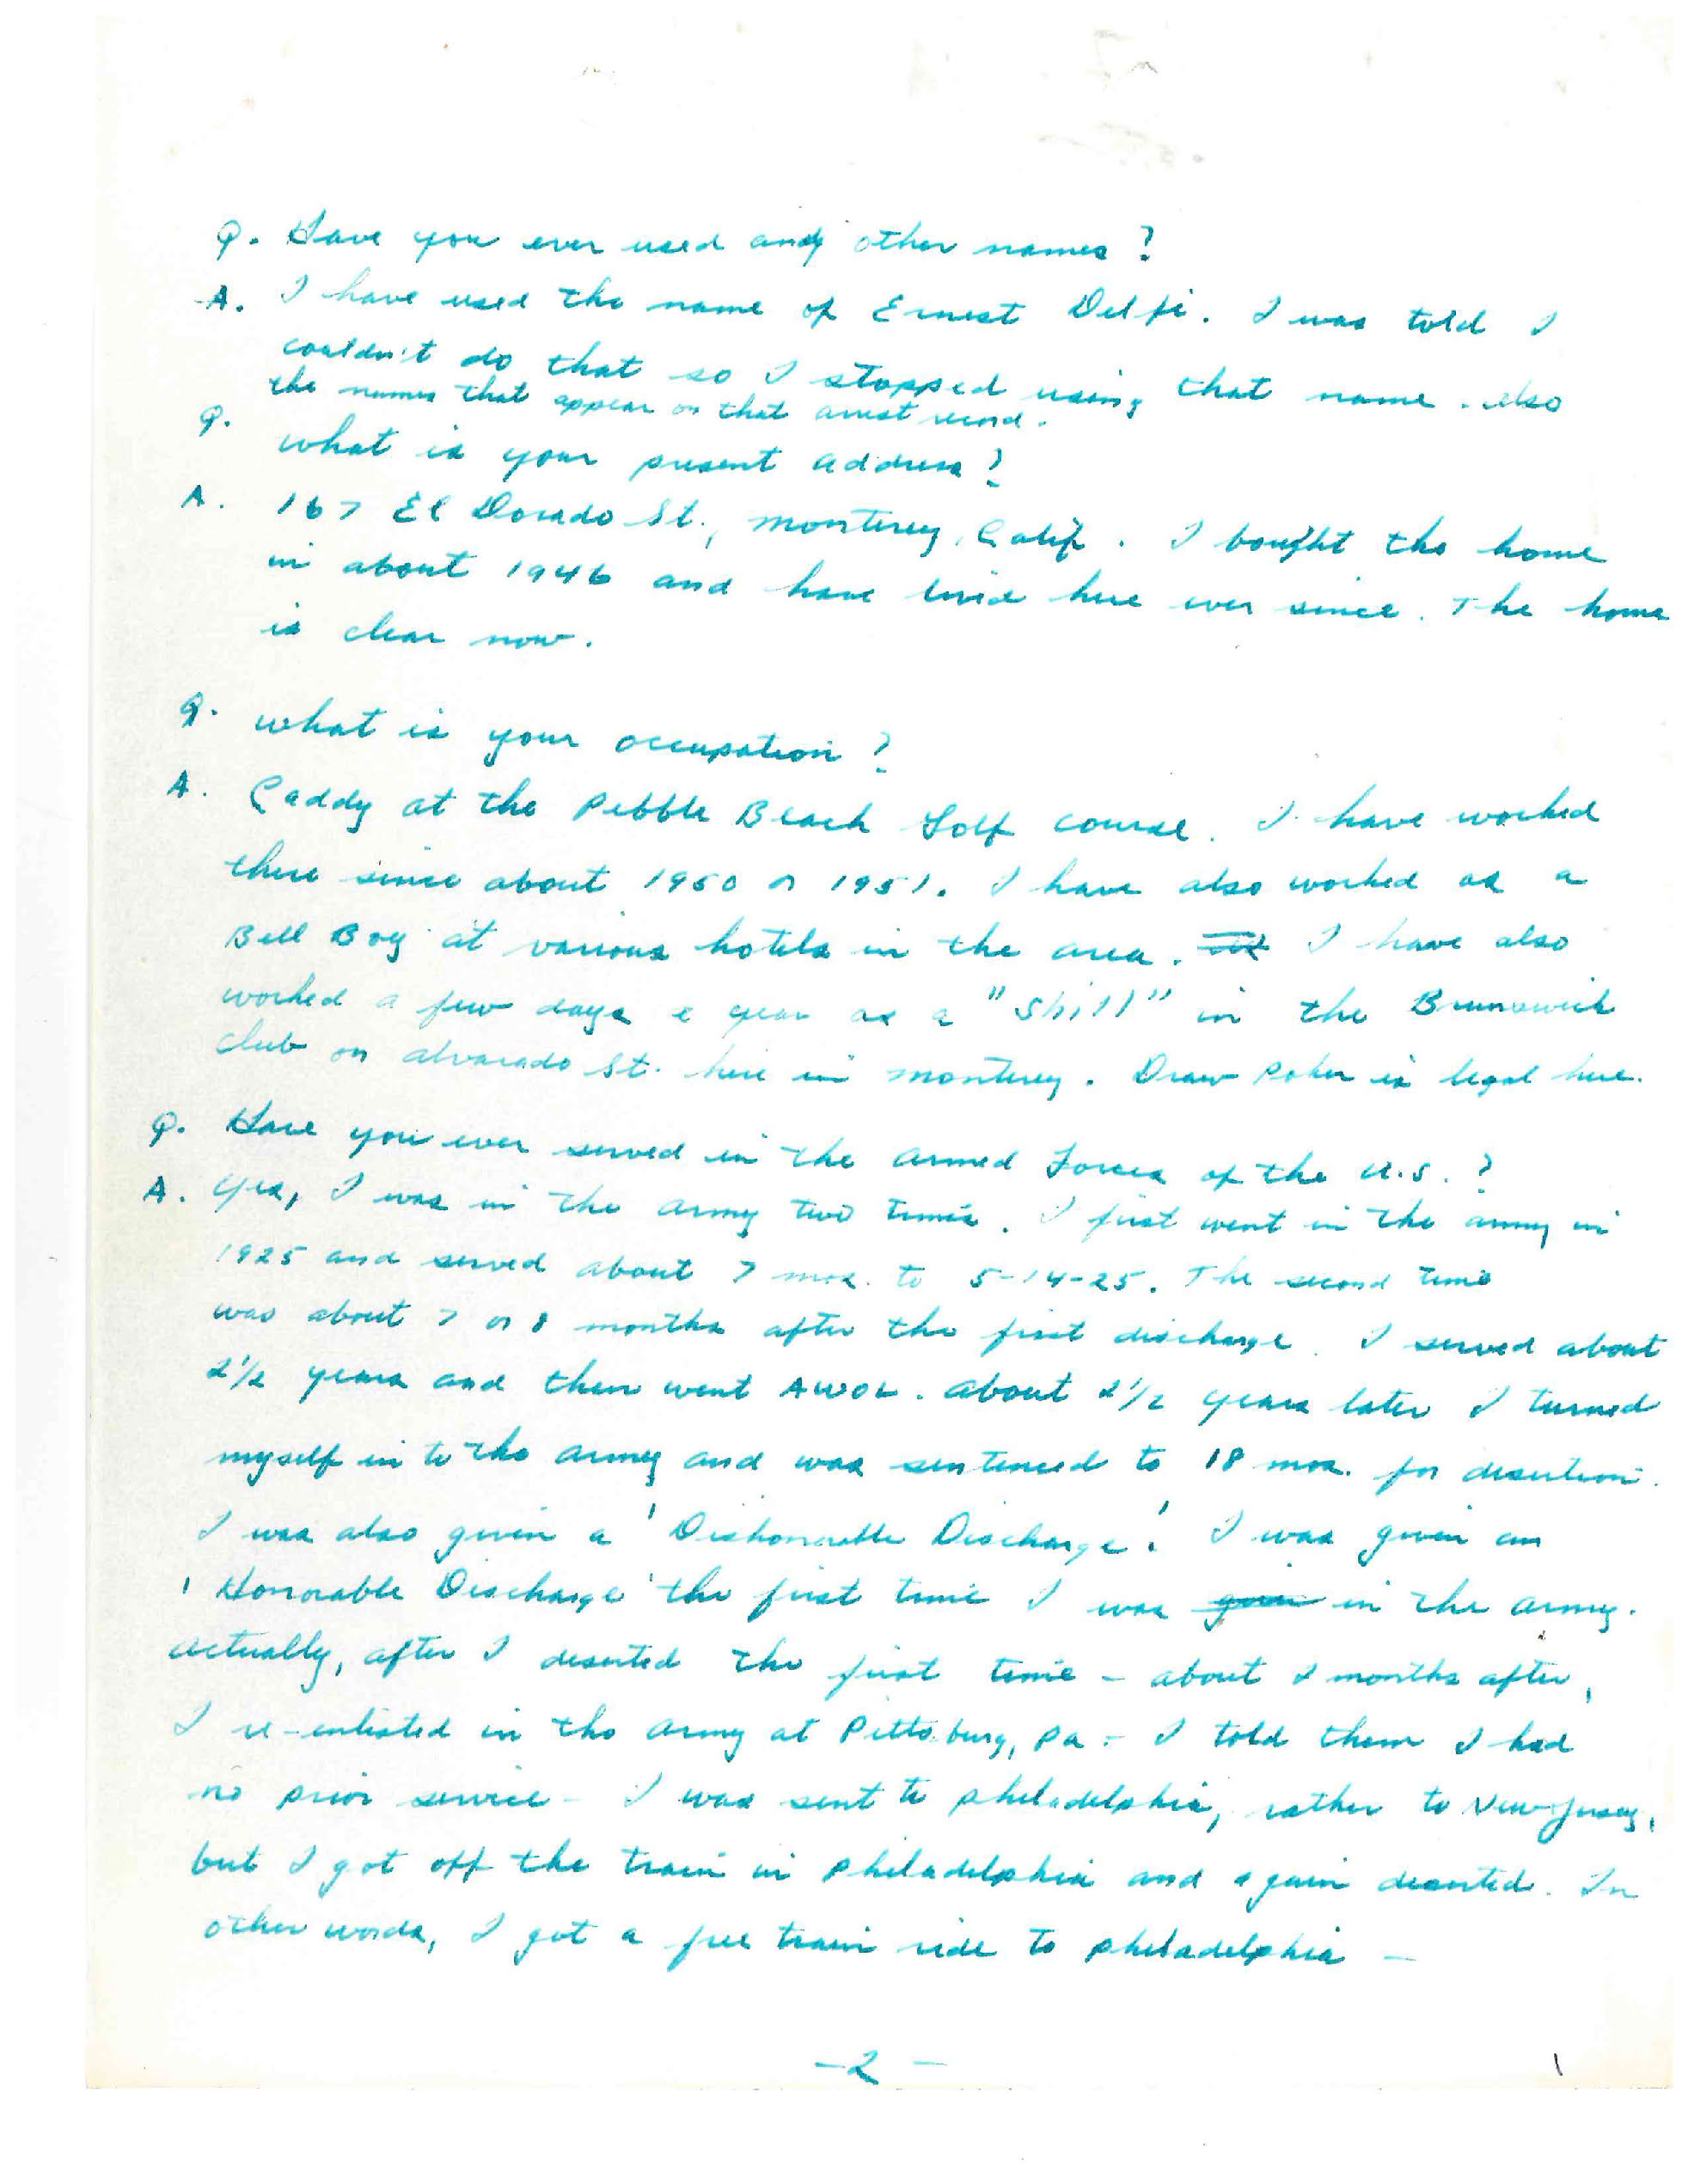 Q. Have you ever used any other names?
A. I have used the name of Ernest Delfi. I was told I
couldn't do that so I stopped using that name. Also
the names that appear on that arrest record.
Q. What is your present address?
A. 167 El Dorado St., Monterey, Calif. I bought the home
in about 1946 and have lived here ever since. The home
is clear now.
Q. What is your occupation?
A. Caddy at the Pebble Beach Golf course. I have worked
there since about 1950 or 1951. I have also worked as a
Bell Boy at various hotels in the area. I have also
worked a few days a year as a "Shill" in the Brunswick
Club on Alvarado St. here in Monterey. Draw Poker is legal here.
Q. Have you ever served in the Armed Forces of the U.S.?
A. Yes, I was in the Army two times. I first went in the army in
1925 and served about 7 mos. to 5-14-25. The second time
was about 7 or 8 months after the first discharge. I served about
2 1/2 years and then went AWOL. About 2 1/2 years later I turned
myself in to the Army and was sentenced to 18 mos. for desertion.
I was also given a 'Dishonorable Discharge'. I was given an
'Honorable Discharge' the first time I was given in the Army.
Actually, after I deserted the first time - about 2 months after,
I re-enlisted in the Army at Pittsburg, Pa - I told them I had
no prior service - I was sent to Philadelphia, rather to New Jersey,
but I got off the train in Philadelphia and again deserted. In
other words, I got a free train ride to Philadelphia -
-2-